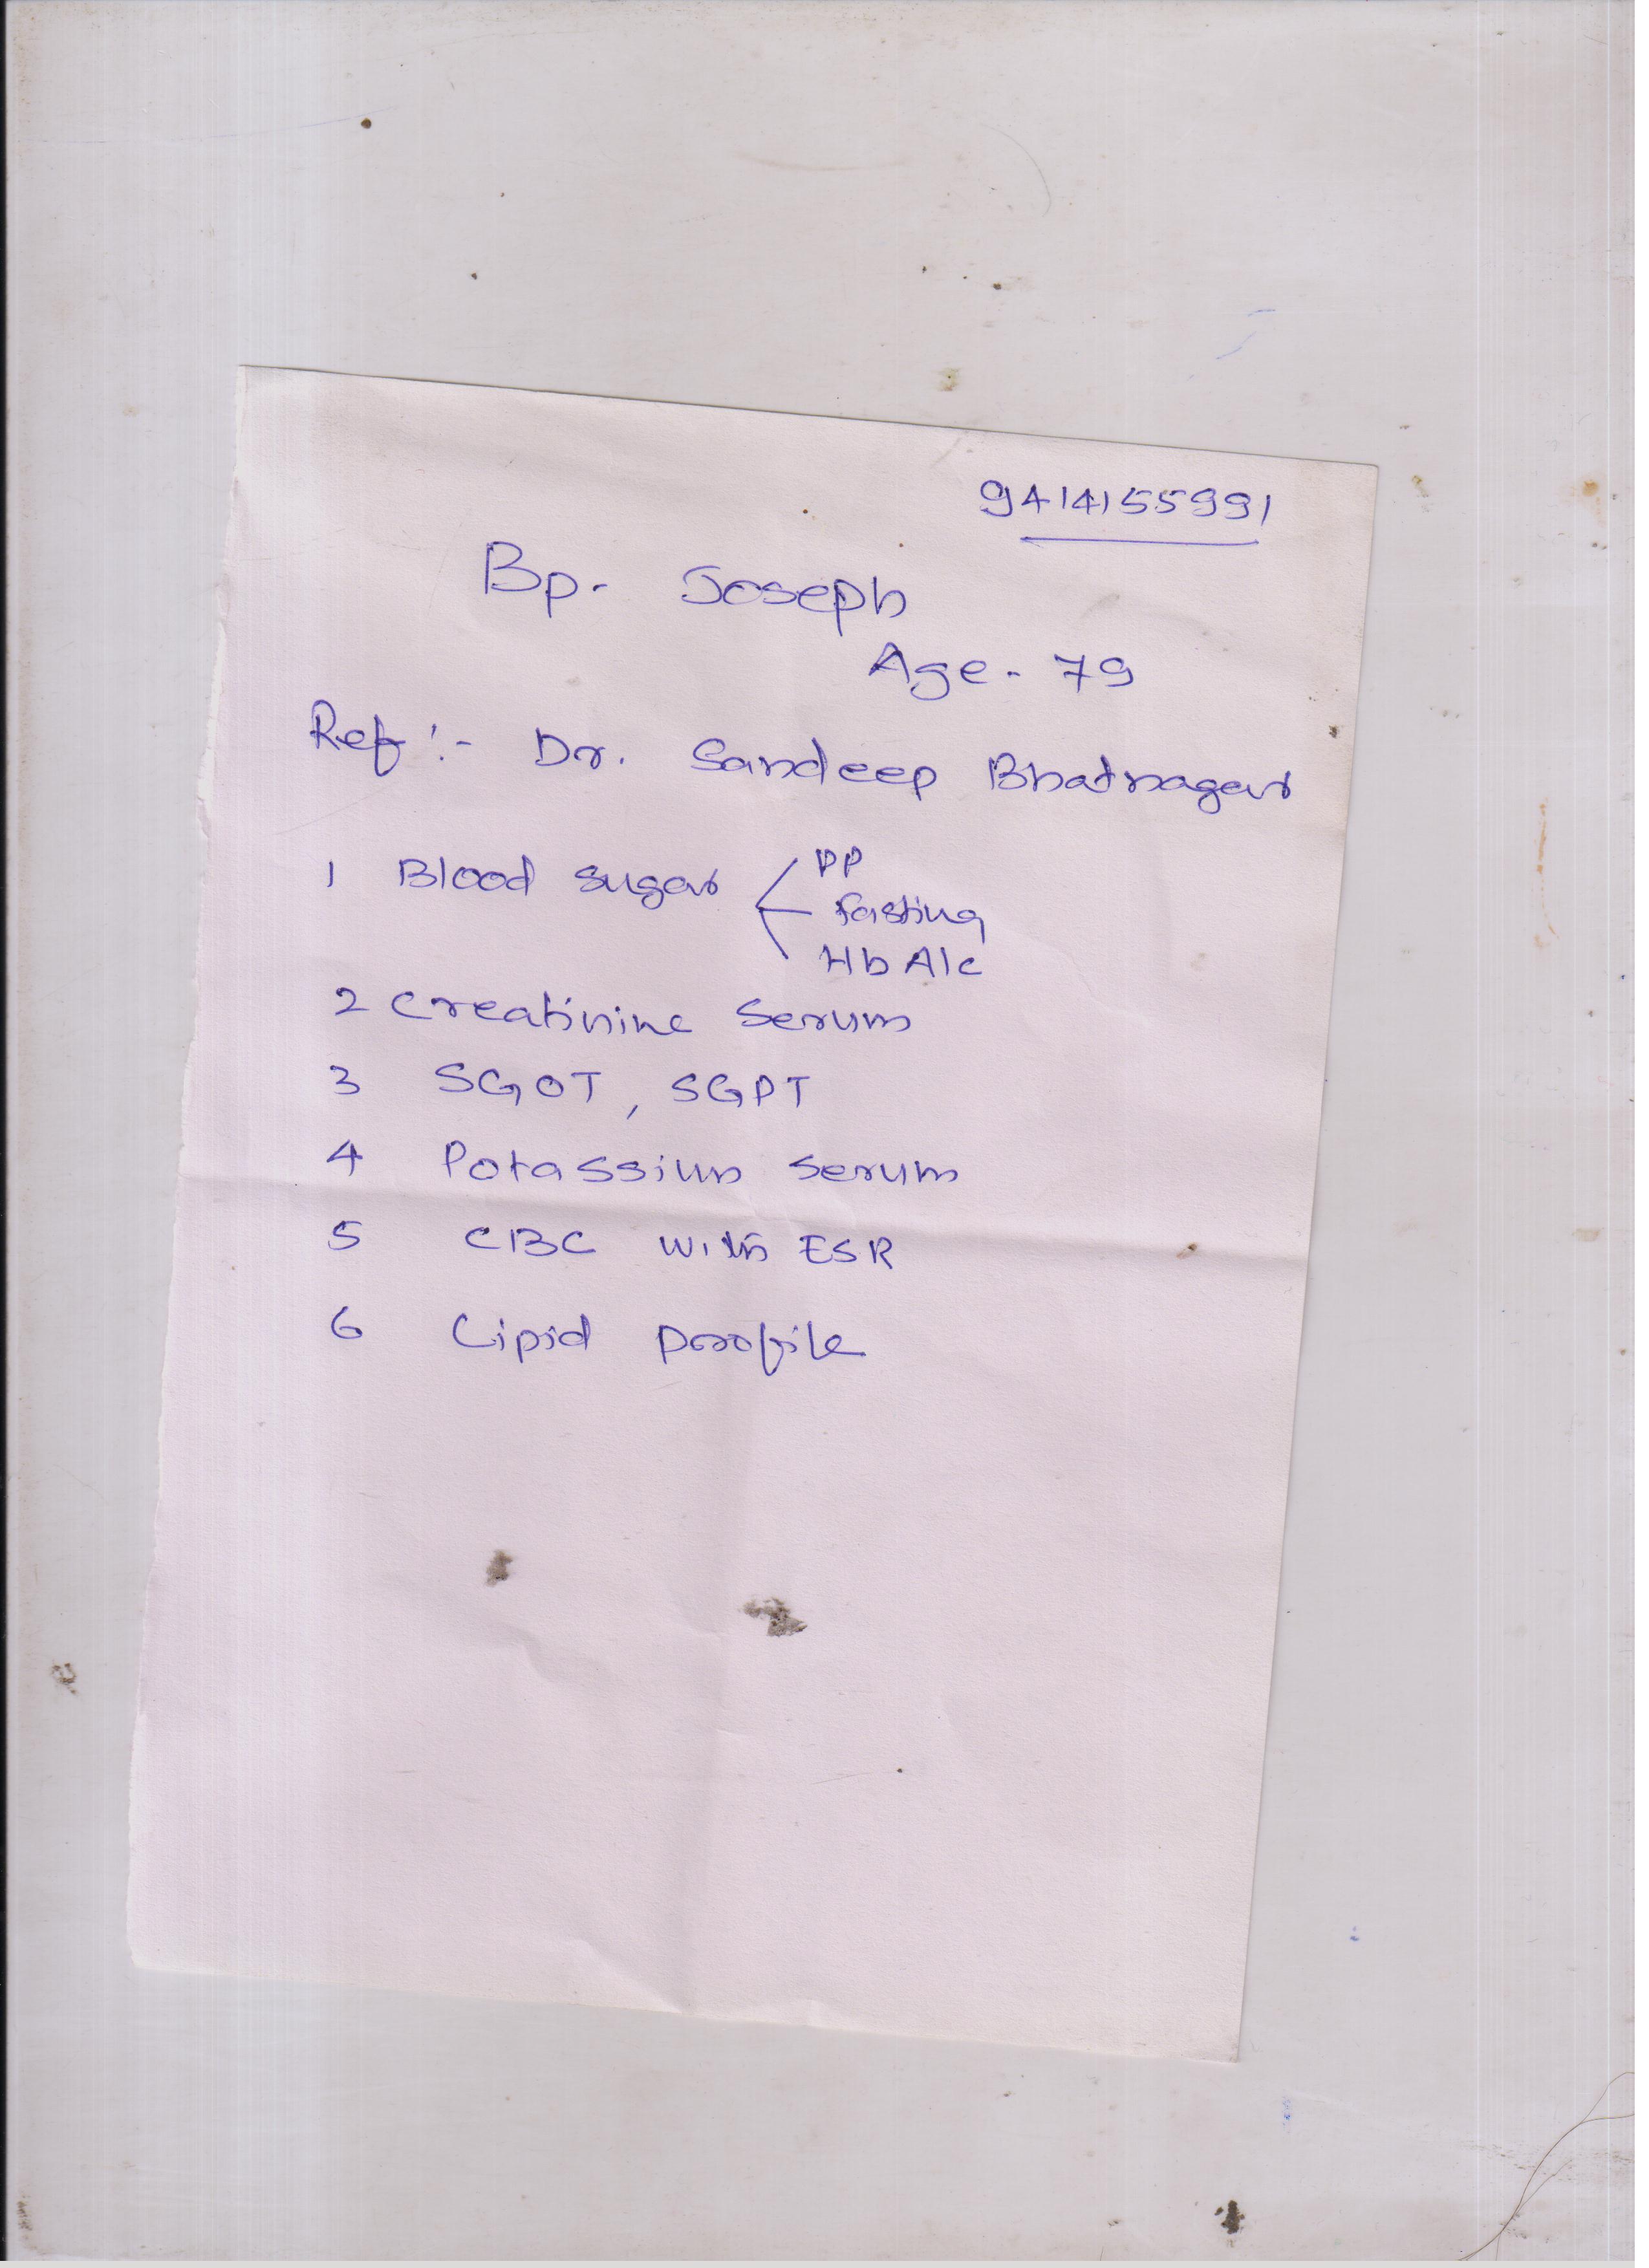 9414155991
Bp. Joseph
Age - 79
Ref :- Dr. Sandeep Bhatnagar
1 Blood sugar < PP
Fasting
HbA1c
2 Creatinine Serum
3 SGOT, SGPT
4 Potassium Serum
5 CBC with ESR
6 Lipid profile